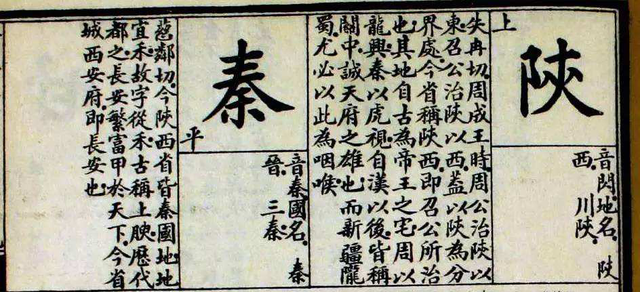 陝
上
音閃。地名。陝
西。川陝。
失冉切。周成王時周公治陝以
東召公治陝以西。蓋以陝為分
界處。今省稱陝西。即召公所治
也其地自古為帝王之宅周以
龍興秦以虎視自漢以後皆稱
關中。誠天府之雄也。而新疆隴
蜀尤必以此為咽喉
秦
平
音秦國名。秦
晉。三秦。
慈鄰切。今陝西省皆秦國地地
宜禾。故字從禾。古稱上腴。歷代
都之。長安繁富甲於天下。今省
城西安府即長安也